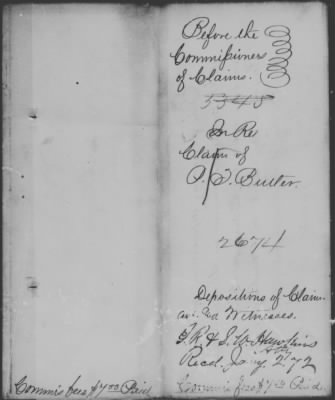 Before the
Commissioners
of Claims.
5348
In Re
Claim of
P. T. Butler.
2674
Depositions of Claim
and Witnesses.
T. R. & S. W. Hawkins
Recd. Jany 2d 72
Commis fees $7.00 Paid
Commis fees $7.00 Paid.